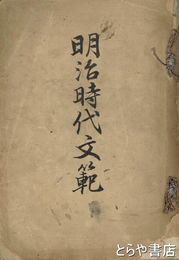 明治時代文範
とらや書店